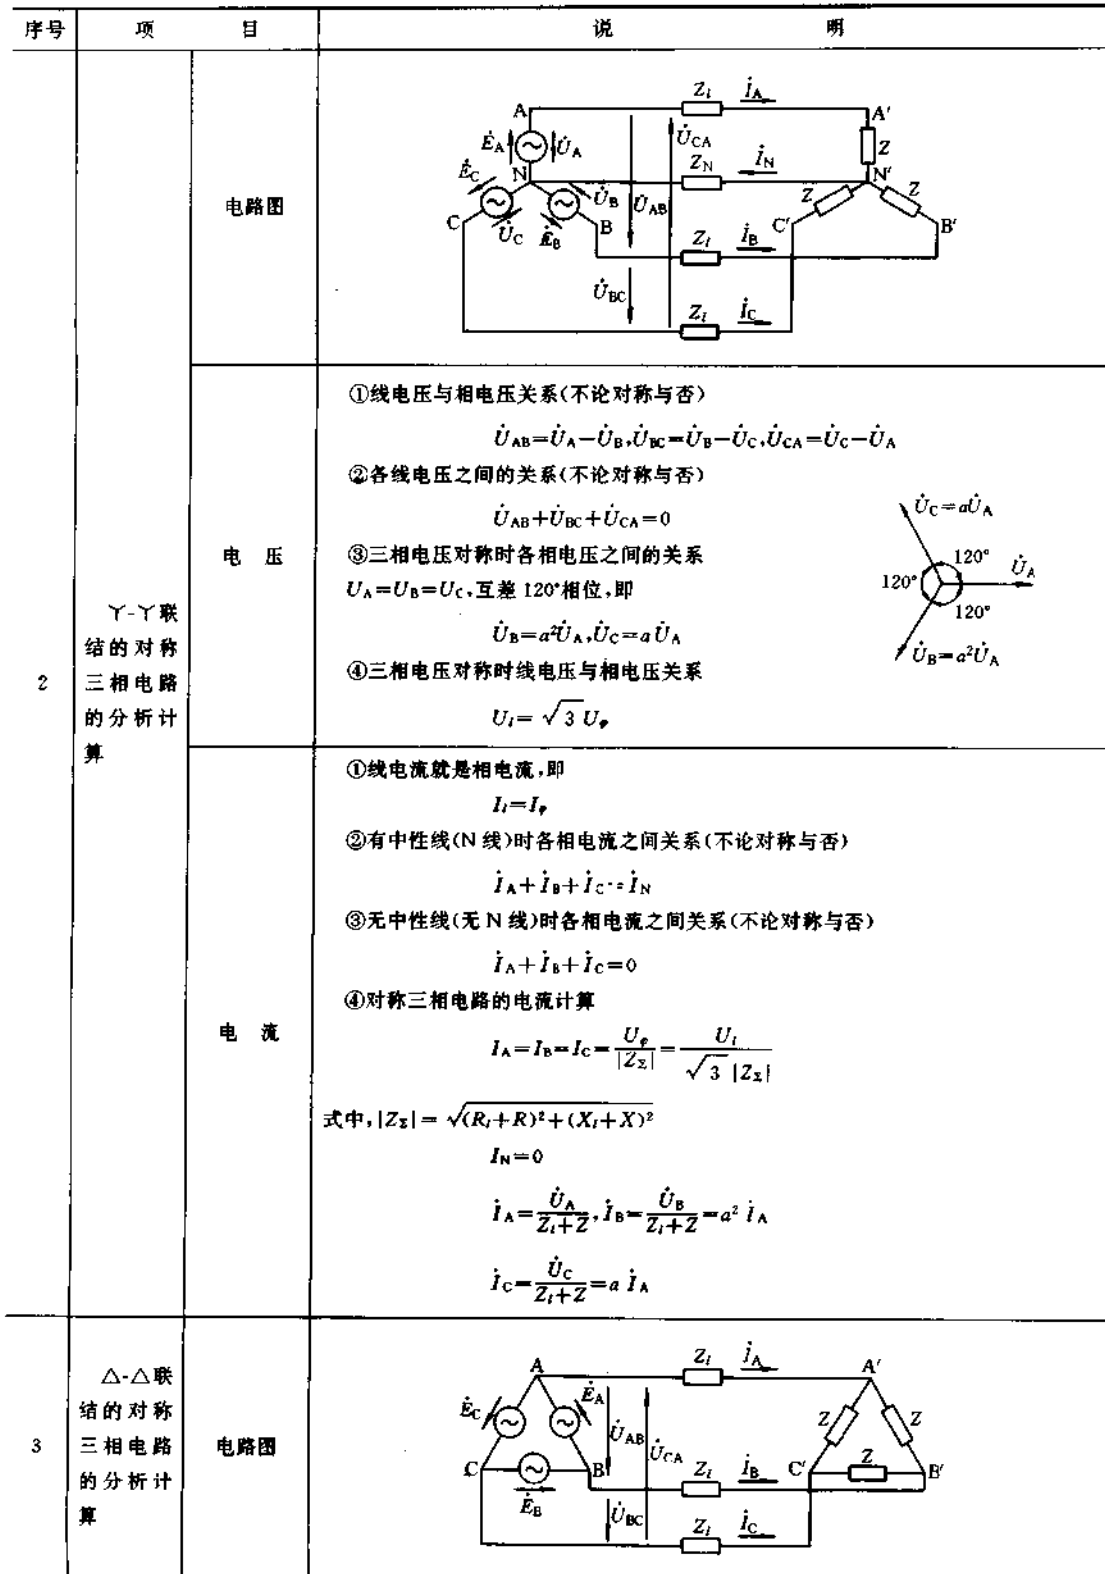 序号 项 目 说 明
2
Y-Y联
结的对称
三相电路
的分析计
算
电路图
A Z_l İ_A A′
Ė_A U̇_A U̇_CA Z
Ė_C N Z_N İ_N N′
U̇_B U̇_AB Z Z
C U̇_C Ė_B B C′ B′
Z_l İ_B
U̇_BC
Z_l İ_C
电 压
①线电压与相电压关系(不论对称与否)
U̇_AB=U̇_A-U̇_B,U̇_BC=U̇_B-U̇_C,U̇_CA=U̇_C-U̇_A
②各线电压之间的关系(不论对称与否)
U̇_AB+U̇_BC+U̇_CA=0
③三相电压对称时各相电压之间的关系
U_A=U_B=U_C,互差120°相位,即
U̇_B=a²U̇_A,U̇_C=a U̇_A
④三相电压对称时线电压与相电压关系
U_l=√3 U_φ
U̇_C=aU̇_A
120°
120° U̇_A
120°
U̇_B=a²U̇_A
电 流
①线电流就是相电流,即
I_l=I_φ
②有中性线(N线)时各相电流之间关系(不论对称与否)
İ_A+İ_B+İ_C=İ_N
③无中性线(无N线)时各相电流之间关系(不论对称与否)
İ_A+İ_B+İ_C=0
④对称三相电路的电流计算
I_A=I_B=I_C=U_φ/|Z_Σ|=U_l/(√3 |Z_Σ|)
式中,|Z_Σ|=√((R_l+R)²+(X_l+X)²)
I_N=0
İ_A=U̇_A/(Z_l+Z),İ_B=U̇_B/(Z_l+Z)=a² İ_A
İ_C=U̇_C/(Z_l+Z)=a İ_A
3
△-△联
结的对称
三相电路
的分析计
算
电路图
A Z_l İ_A A′
Ė_C Ė_A Z Z
U̇_AB U̇_CA
C B Z_l İ_B C′ Z B′
Ė_B U̇_BC
Z_l İ_C